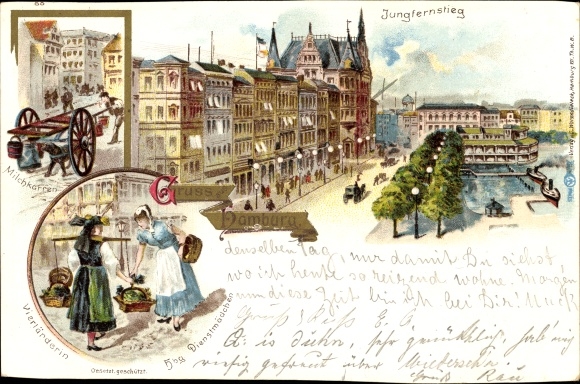 88
Jungfernstieg
Milchkarren
Gruss
Hamburg
Vierländerin
Hbg. Dienstmädchen
Gesetzl. geschützt.
denselben Tag, nur damit Du siehst
wo ich heute so reizend wohne. Morgen
um diese Zeit bin ich bei Dir!
Gruß Kuss E. G.
sehr gemütlich, hab' mich
riesig gefreut über Wiedersehn.
Gruß